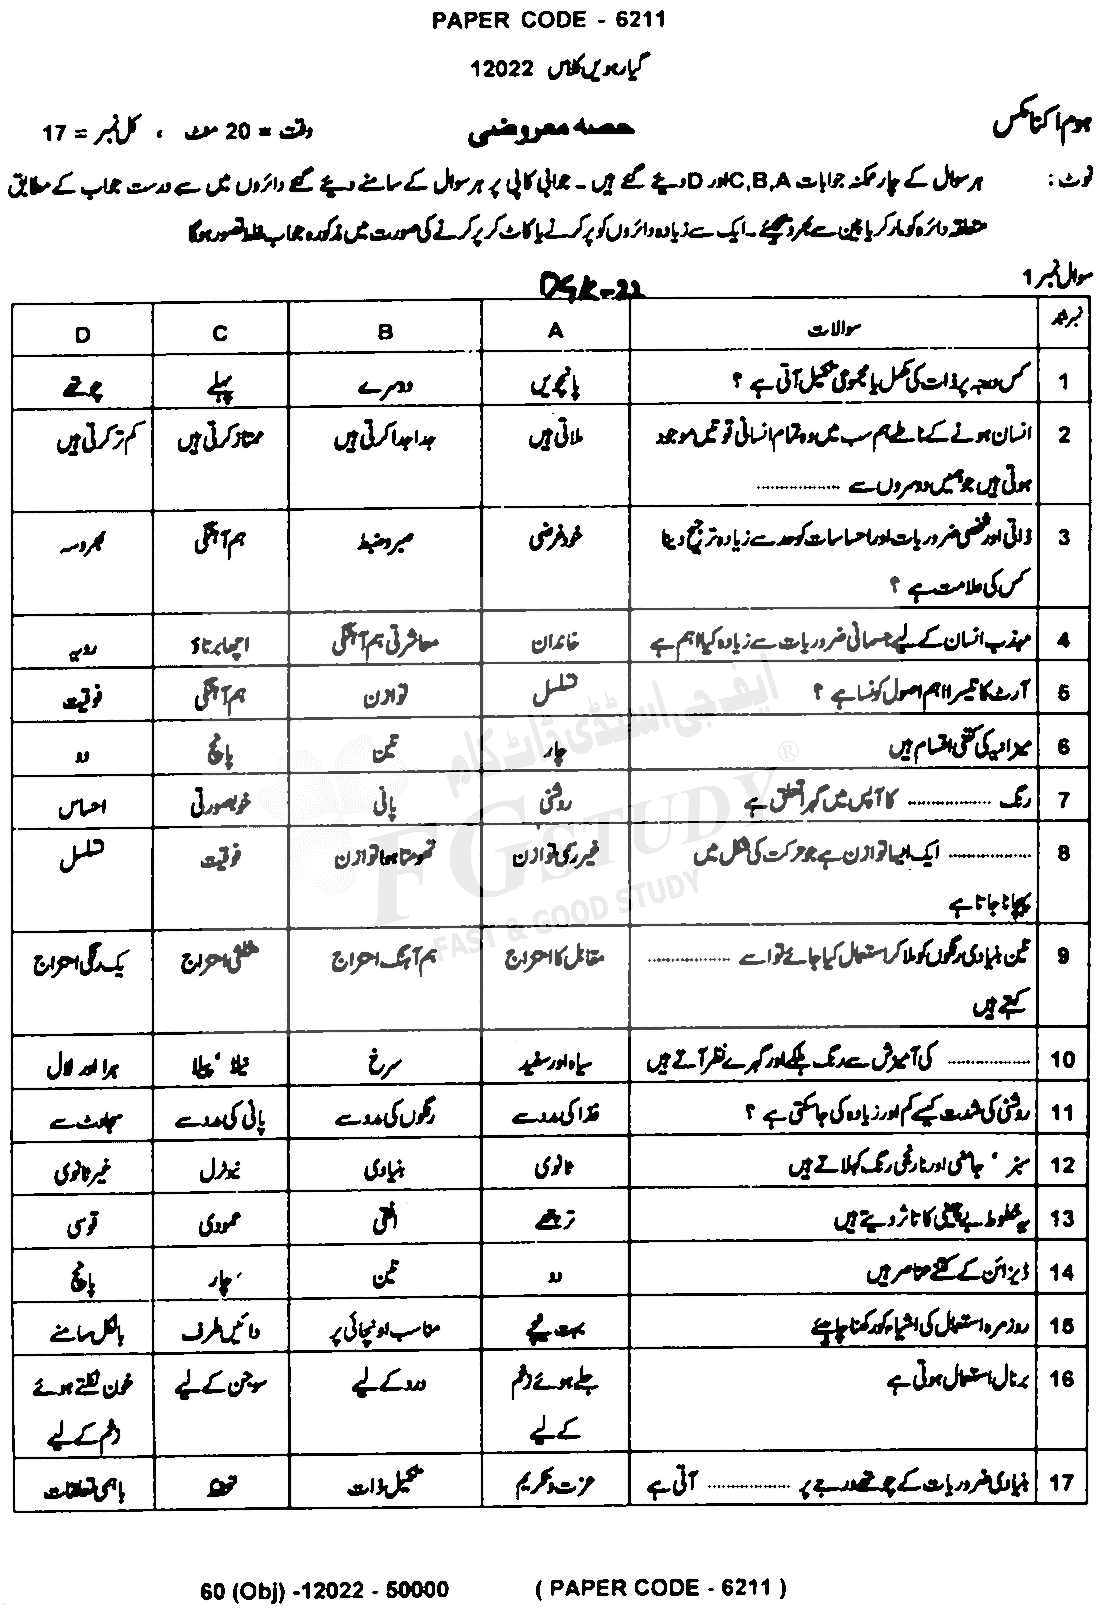 PAPER CODE - 6211
گیارھویں کلاس 12022
ہوم اکنامکس
حصہ معروضی
وقت = 20 منٹ ، کل نمبر = 17
نوٹ : ہر سوال کے چار ممکنہ جوابات C,B,A اور D دیئے گئے ہیں ۔ جوابی کاپی پر ہر سوال کے سامنے دیئے گئے دائروں میں سے درست جواب کے مطابق
متعلقہ دائرہ کو مارکر یا پین سے بھر دیجیئے ۔ ایک سے زیادہ دائروں کو پر کرنے یا کاٹ کر پر کرنے کی صورت میں مذکورہ جواب غلط تصور ہوگا
سوال نمبر 1
DGK-22
نمبر شمار سوالات A B C D
1 کس درجہ پر ذات کی مکمل یا مجموعی تشکیل آتی ہے ؟ پانچویں دوسرے پہلے چوتھے
2 انسان ہونے کے ناطے ہم سب میں وہ تمام انسانی قوتیں موجود ملاتی ہیں جدا جدا کرتی ہیں ممتاز کرتی ہیں کم تر کرتی ہیں
ہوتی ہیں جو ہمیں دوسروں سے ................
3 ذاتی اور شخصی ضروریات اور احساسات کو حد سے زیادہ ترجیح دینا خود غرضی صبر و ضبط ہم آہنگی بھروسہ
کس کی علامت ہے ؟
4 مہذب انسان کے لیے جسمانی ضروریات سے زیادہ کیا اہم ہے خاندان معاشرتی ہم آہنگی اچھا برتاؤ رویہ
5 آرٹ کا تیسرا اہم اصول کونسا ہے ؟ تسلسل توازن ہم آہنگی فوقیت
6 میزانیہ کی کتنی اقسام ہیں چار تین پانچ دو
7 رنگ ................ کا آپس میں گہرا تعلق ہے روشنی پانی خوبصورتی احساس
8 ................ ایک ایسا توازن ہے جو حرکت کی شکل میں غیر رسمی توازن گھومتا ہوا توازن فوقیت تسلسل
پہچانا جاتا ہے
9 تین بنیادی رنگوں کو ملا کر استعمال کیا جائے تو اسے ................ مقابل کا امتزاج ہم آہنگ امتزاج مثلثی امتزاج یک رنگی امتزاج
کہتے ہیں
10 ................ کی آمیزش سے رنگ ہلکے اور گہرے نظر آتے ہیں سیاہ اور سفید سرخ نیلا ، پیلا ہرا اور لال
11 روشنی کی شدت کیسے کم اور زیادہ کی جاسکتی ہے ؟ غذا کی مدد سے رنگوں کی مدد سے پانی کی مدد سے سجاوٹ سے
12 سبز ، جامنی اور نارنجی رنگ کہلاتے ہیں ثانوی بنیادی نیوٹرل غیر ثانوی
13 یہ خطوط بے چینی کا تاثر دیتے ہیں ترچھے افقی عمودی قوسی
14 ڈیزائن کے کتنے عناصر ہیں دو تین چار پانچ
15 روزمرہ استعمال کی اشیاء کو رکھنا چاہیئے بہت نیچے مناسب اونچائی پر دائیں طرف بالکل سامنے
16 برنال استعمال ہوتی ہے جلے ہوئے زخم درد کے لیے سوجن کے لیے خون نکلتے ہوئے
کے لیے زخم کے لیے
17 بنیادی ضروریات کے چوتھے درجے پر ................ آتی ہے عزت و تکریم تشکیل ذات تحفظ باہمی تعلقات
ایف جی اسٹڈی ڈاٹ کام
FG STUDY ®
FAST & GOOD STUDY
60 (Obj) -12022 - 50000 ( PAPER CODE - 6211 )